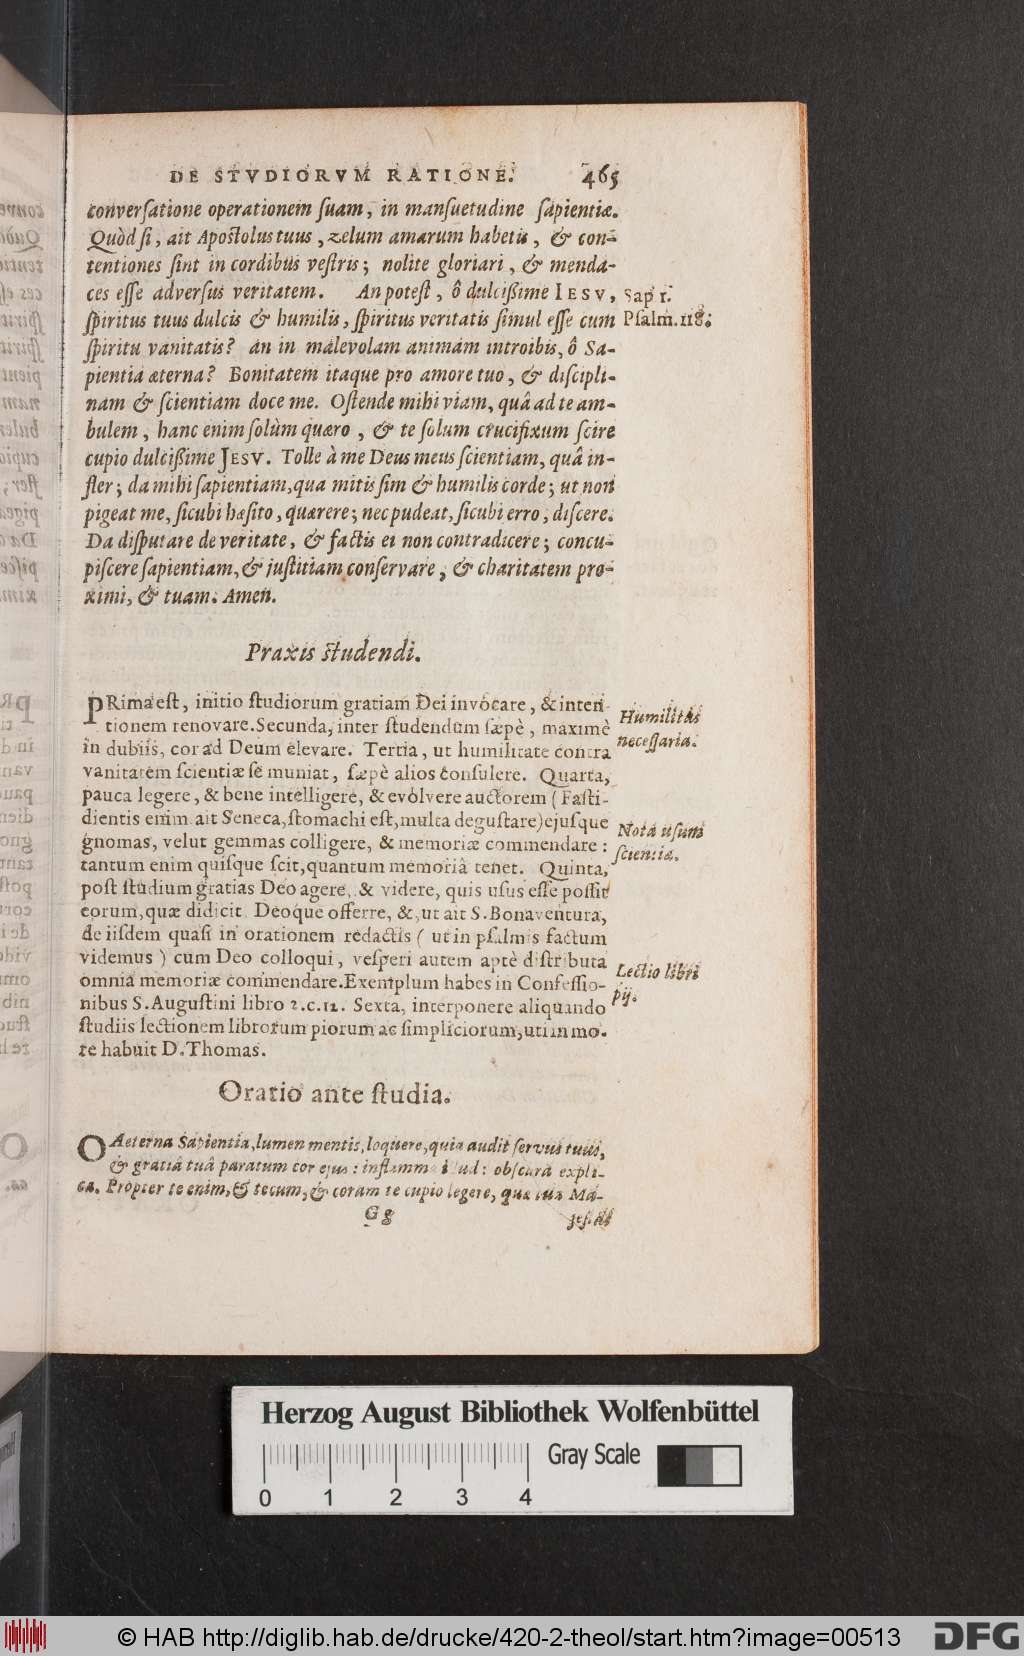 DE STVDIORVM RATIONE. 465
conversatione operationem suam, in mansuetudine sapientiæ.
Quòd si, ait Apostolus tuus, zelum amarum habetis, & con-
tentiones sint in cordibus vestris; nolite gloriari, & menda-
ces esse adversus veritatem. An potest, ô dulcißime IESV,
Sap 1.
spiritus tuus dulcis & humilis, spiritus veritatis simul esse cum
Psalm. 118.
spiritu vanitatis? an in malevolam animam introibis, ô Sa-
pientia æterna? Bonitatem itaque pro amore tuo, & discipli-
nam & scientiam doce me. Ostende mihi viam, quâ ad te am-
bulem, hanc enim solùm quæro, & te solum crucifixum scire
cupio dulcißime JESV. Tolle à me Deus meus scientiam, quâ in-
fler; da mihi sapientiam, qua mitis sim & humilis corde; ut non
pigeat me, sicubi hæsito, quærere; nec pudeat, sicubi erro, discere.
Da disputare de veritate, & factis ei non contradicere; concu-
piscere sapientiam, & justitiam conservare, & charitatem pro-
ximi, & tuam. Amen.
Praxis studendi.
PRima est, initio studiorum gratiam Dei invocare, & inten-
tionem renovare. Secunda, inter studendum sæpè, maximè
Humilitas
in dubiis, cor ad Deum elevare. Tertia, ut humilitate contra
necessaria.
vanitatem scientiæ se muniat, sæpè alios consulere. Quarta,
pauca legere, & bene intelligere, & evolvere auctorem (Fasti-
dientis enim ait Seneca, stomachi est, multa degustare) ejusque
gnomas, velut gemmas colligere, & memoriæ commendare:
Nota usum
tantum enim quisque scit, quantum memoriâ tenet. Quinta,
scientiæ.
post studium gratias Deo agere, & videre, quis usus esse possit
eorum, quæ didicit Deoque offerre, &, ut ait S. Bonaventura,
de iisdem quasi in orationem redactis (ut in psalmis factum
videmus) cum Deo colloqui, vesperi autem aptè distributa
omnia memoriæ commendare. Exemplum habes in Confessio-
Lectio libri
nibus S. Augustini libro 2. c. 12. Sexta, interponere aliquando
pij.
studiis lectionem librorum piorum ac simpliciorum, uti in mo-
re habuit D. Thomas.
Oratio ante studia.
O Aeterna Sapientia, lumen mentis, loquere, quia audit servus tuus,
& gratiâ tuâ paratum cor ejus: inflamma illud: obscura expli-
ca. Propter te enim, & tecum, & coram te cupio legere, quæ tua Ma-
Gg jestas
Herzog August Bibliothek Wolfenbüttel
Gray Scale
0 1 2 3 4
© HAB http://diglib.hab.de/drucke/420-2-theol/start.htm?image=00513
DFG